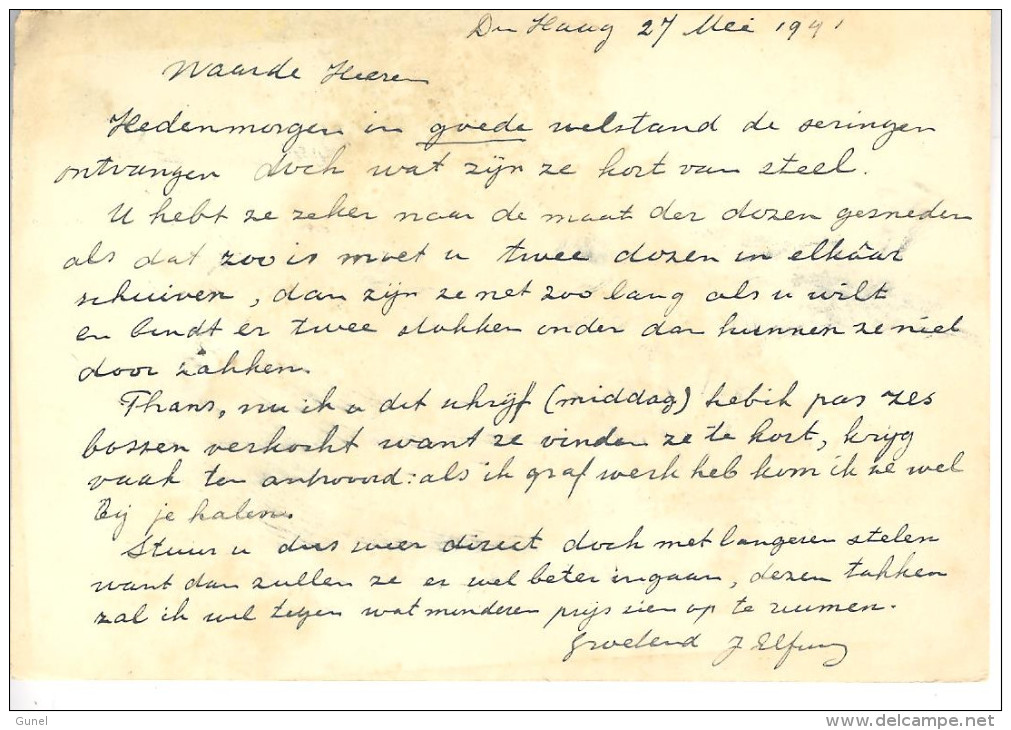 Den Haag 27 Mei 1941
Waarde Heeren
Hedenmorgen in goede welstand de seringen
ontvangen doch wat zijn ze kort van steel.
U hebt ze zeker naar de maat der dozen gesneden
als dat zoo is moet u twee dozen in elkâar
schuiven, dan zijn ze net zoo lang als u wilt
en bindt er twee stokken onder dan kunnen ze niet
door zakken.
Thans, nu ik u dit schrijf (middag) heb ik pas zes
bossen verkocht want ze vinden ze te kort, krijg
vaak ten antwoord: als ik graf werk heb kom ik ze wel
bij je halen.
Stuur u dus weer direct doch met langeren stelen
want dan zullen ze er wel beter ingaan, dezen takken
zal ik wel tegen wat minderen prijs zien op te ruimen.
Groetend J Elfring
Gunel
www.delcampe.net